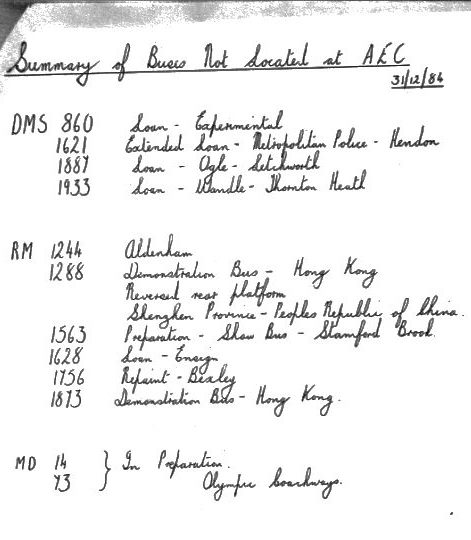 Summary of Buses Not Located at AEC
31/12/84
DMS 860 Loan - Experimental
1621 Extended Loan - Metropolitan Police - Hendon
1887 Loan - Ogle - Letchworth
1933 Loan - Wandle - Thornton Heath
RM 1244 Aldenham
1288 Demonstration Bus - Hong Kong
Reversed rear platform
Shenzhen Province - Peoples Republic of China.
1563 Preparation - Show Bus - Stamford Brook.
1628 Loan - Ensign
1756 Repaint - Bexley
1873 Demonstration Bus - Hong Kong.
MD 14 } In Preparation.
73 } Olympic Coachways.